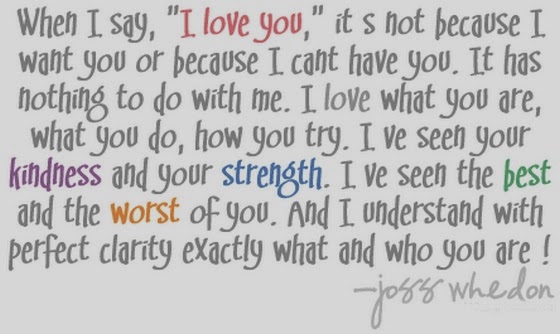 When I say, "I love you," it s not because I
want you or because I cant have you. It has
nothing to do with me. I love what you are,
what you do, how you try. I ve seen your
kindness and your strength. I ve seen the best
and the worst of you. And I understand with
perfect clarity exactly what and who you are !
—joss whedon